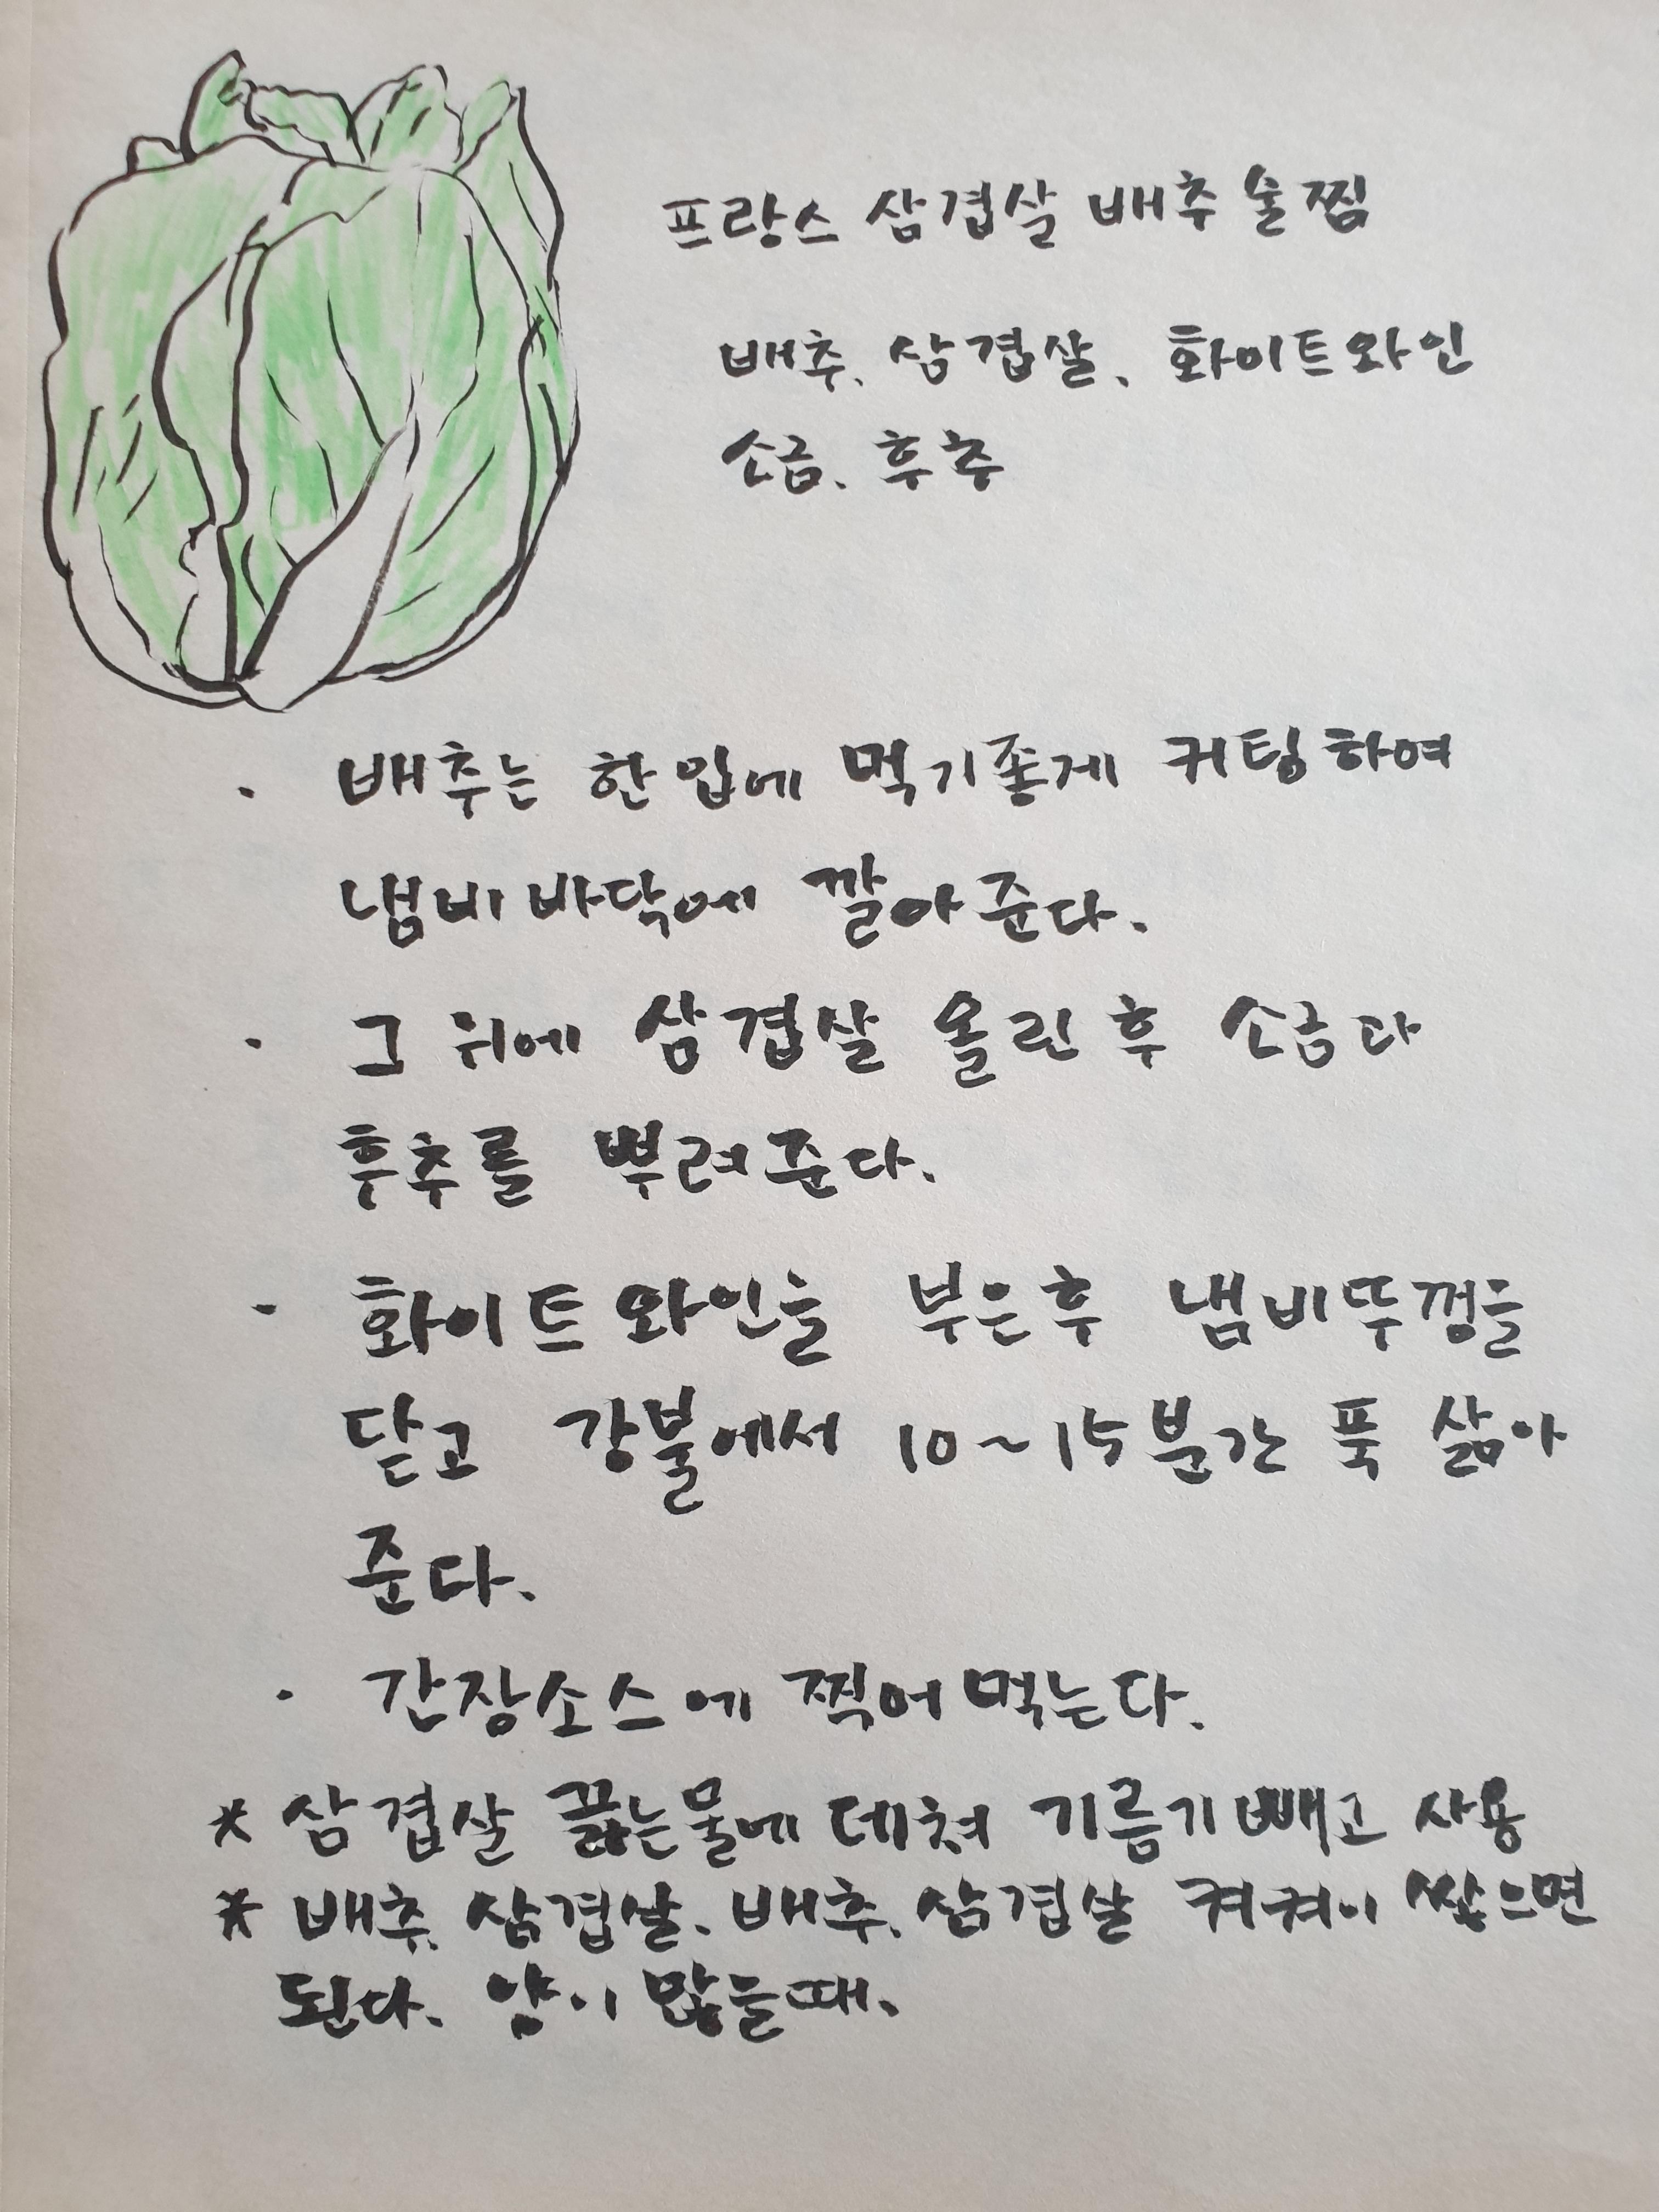 프랑스 삼겹살 배추 술찜
배추、삼겹살、화이트와인
소금、후추
· 배추는 한입에 먹기좋게 커팅하여
냄비 바닥에 깔아준다.
· 그 위에 삼겹살 올린 후 소금과
후추를 뿌려준다.
- 화이트 와인을 부은후 냄비뚜껑을
닫고 강불에서 10~15분간 푹 삶아
준다.
· 간장소스에 찍어 먹는다.
* 삼겹살 끓는물에 데쳐 기름기 빼고 사용
* 배추、삼겹살、배추、삼겹살 켜켜이 쌓으면
된다. 양이 많을때.